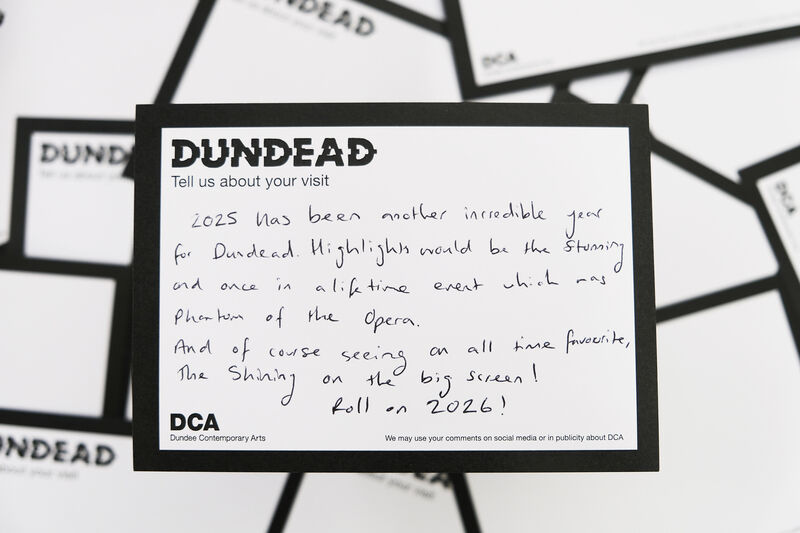 DUNDEAD
Tell us about your visit
2025 has been another incredible year
for Dundead. Highlights would be the stunning
and once in a lifetime event which was
Phantom of the Opera.
And of course seeing an all time favourite,
The Shining on the big screen!
Roll on 2026!
DCA
Dundee Contemporary Arts
We may use your comments on social media or in publicity about DCA
DUND
Tell us about
NDEAD
about your visit
DCA
DCA
NDEAD
out your visit